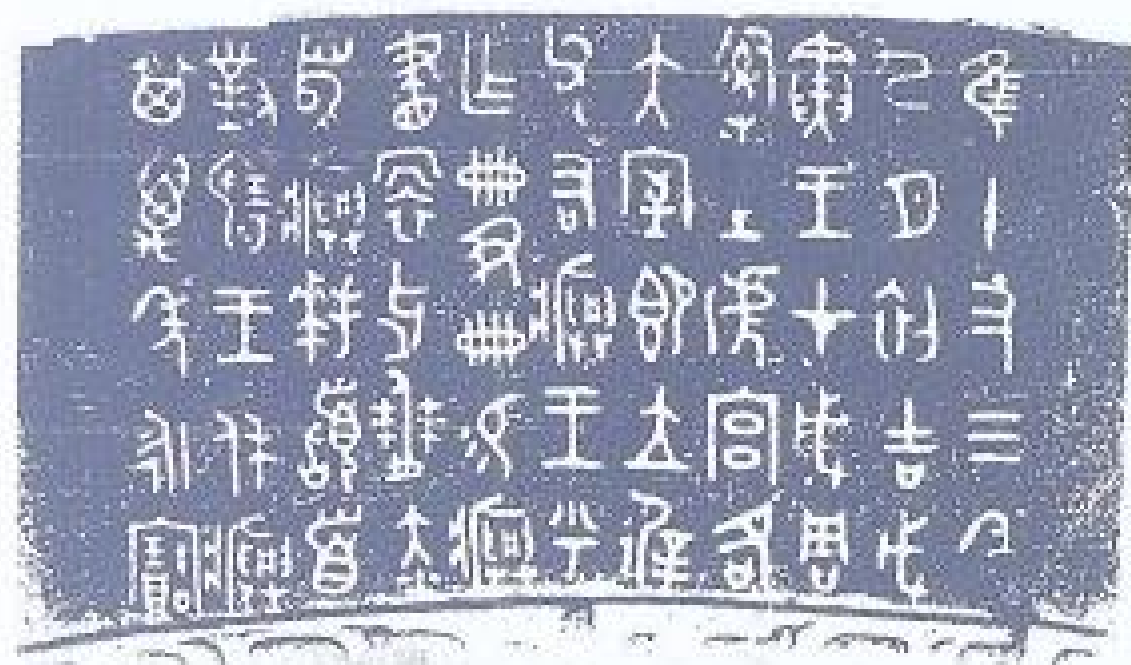 隹十又三年
九月初吉戊
寅王才成周
司土淲宮各
大室即立𢓊
父右𤼈王乎
乍冊尹冊易𤼈
畫𧘂牙僰赤
舄𤼈拜𩒨首
對揚王休𤼈
其萬年永寶